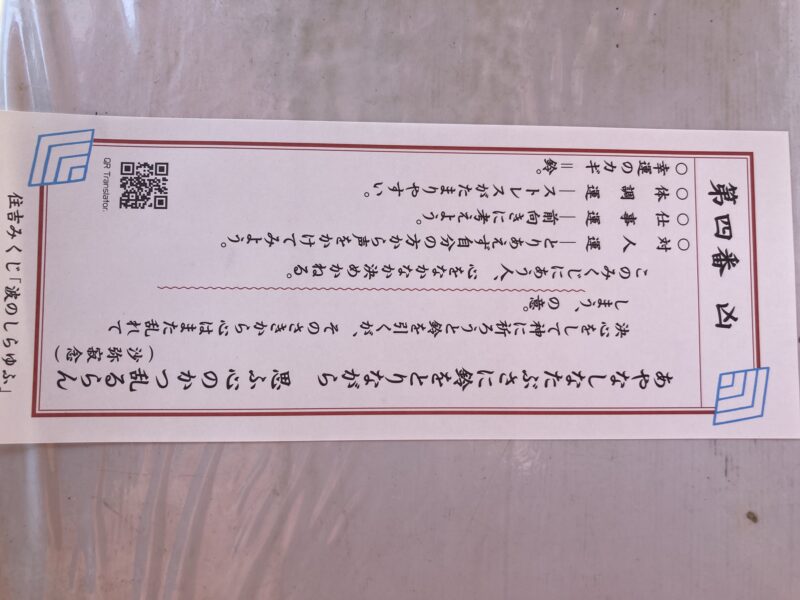 第四番 凶
あやなしなたぶさに鈴をとりながら　思ふ心のかつ乱るらん
（沙弥寂念）
決心をして神に祈ろうと鈴を引くが、そのさきから心はまた乱れて
しまう、の意。
このみくじにあう人、心をなかなか決めかねる。
○対　人　運―とりあえず自分の方から声をかけてみよう。
○仕　事　運―前向きに考えよう。
○体　調　運―ストレスがたまりやすい。
○幸運のカギ＝鈴。
QR Translator.
住吉みくじ「波のしらゆふ」